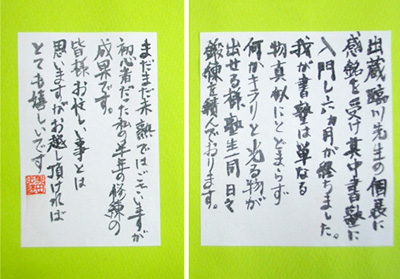 出蔵臨川先生の個展に
感銘を受け其中書塾に
入門し六ヵ月が経ちました。
我が書塾は単なる
物真似にとどまらず
何かキラリと光る物が
出せる様塾生一同日々
鍛錬を積んでおります。
まだまだ未熟ではございますが
初心者だった私の半年の修練の
成果です。
皆様お忙しい事とは
思いますがお越し頂ければ
とても嬉しいです